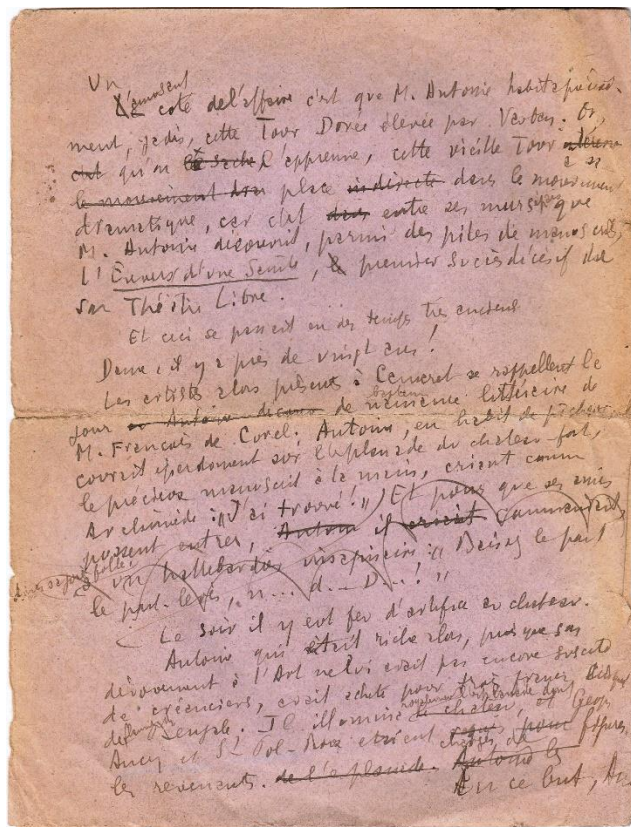 Un amusant
côté de l'affaire c'est que M. Antoine habita précisé-
ment, jadis, cette Tour Dorée élevée par Verban. Or,
qu'on l'apprenne, cette vieille Tour a sa
le mouvement place indirecte dans le mouvement
dramatique, car c'est dans entre ses murs que
M. Antoine découvrit, parmi des piles de manuscrits,
l'Envers d'une Sainte, premier succès décisif de
son Théâtre Libre.
Et ceci se passait en des temps très anciens
Dame, il y a près de vingt ans!
Les artistes alors présents à Camaret se rappellent le
jour Antoine de littéraire de
M. François de Curel. Antoine, en habit de pêcheur,
courait éperdument sur l'esplanade du château-fort,
le précieux manuscrit à la main, criant comme
Archimède : "J'ai trouvé!" Et pour que ses amis
pussent entrer, Antoine il criait commandait
à un hallebardier : "Baissez le
le pont-levis, n... d... D...!"
Le soir il y eut feu d'artifice au château.
Antoine qui était riche alors, puisque son
dévouement à l'Art ne lui avait pas encore suscité
de créanciers, avait acheté pour trois francs
de Bengale. Il illumina le château, et Georges
Ancey et St Pol-Roux étaient chargés de figurer
les revenants. de l'esplanade. Antoine
En ce but, An-